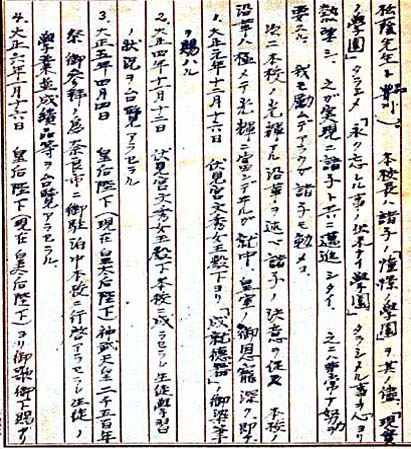 松陰先生ト 本校長ハ諸子ノ「憧憬ノ學園」ヲ其ノ儘、「現實
ノ學園」タラシメ「永ク忘レル事ノ出来ナイ學園」タラシメル事ヲ心ヨリ
熱望シ、之ガ実現ニ諸子ト共ニ邁進シタイ。之ニハ非常ナ努力ヲ
要スル。我モ勵ムデアラウガ諸子モ勉メヨ。
次ニ本校ノ光輝アル沿革ヲ述ベ諸子ノ決意ヲ促ス 本校ノ
沿革ハ極メテ光輝ニ富ンデヰルガ就中、皇室ノ御恩寵深ク、即チ
1、大正元年十二月十六日 伏見宮文秀女王殿下ヨリ「成就徳器」ノ御染筆
ヲ賜ハル
2、大正四年十月十二日 伏見宮文秀女王殿下本校ニ成ラセラレ生徒學習
ノ状況ヲ台覧アラセラル
3、大正五年四月四日 皇后陛下(現在皇太后陛下)神武天皇二千五百年
祭御参拝ノ為奈良市ニ御駐泊中本校ニ行啓アラセラレ生徒ノ
學業並成績品等ヲ台覧アラセラル。
4、大正六年一月十六日 皇后陛下(現在皇太后陛下)ヨリ御歌御下賜アリ